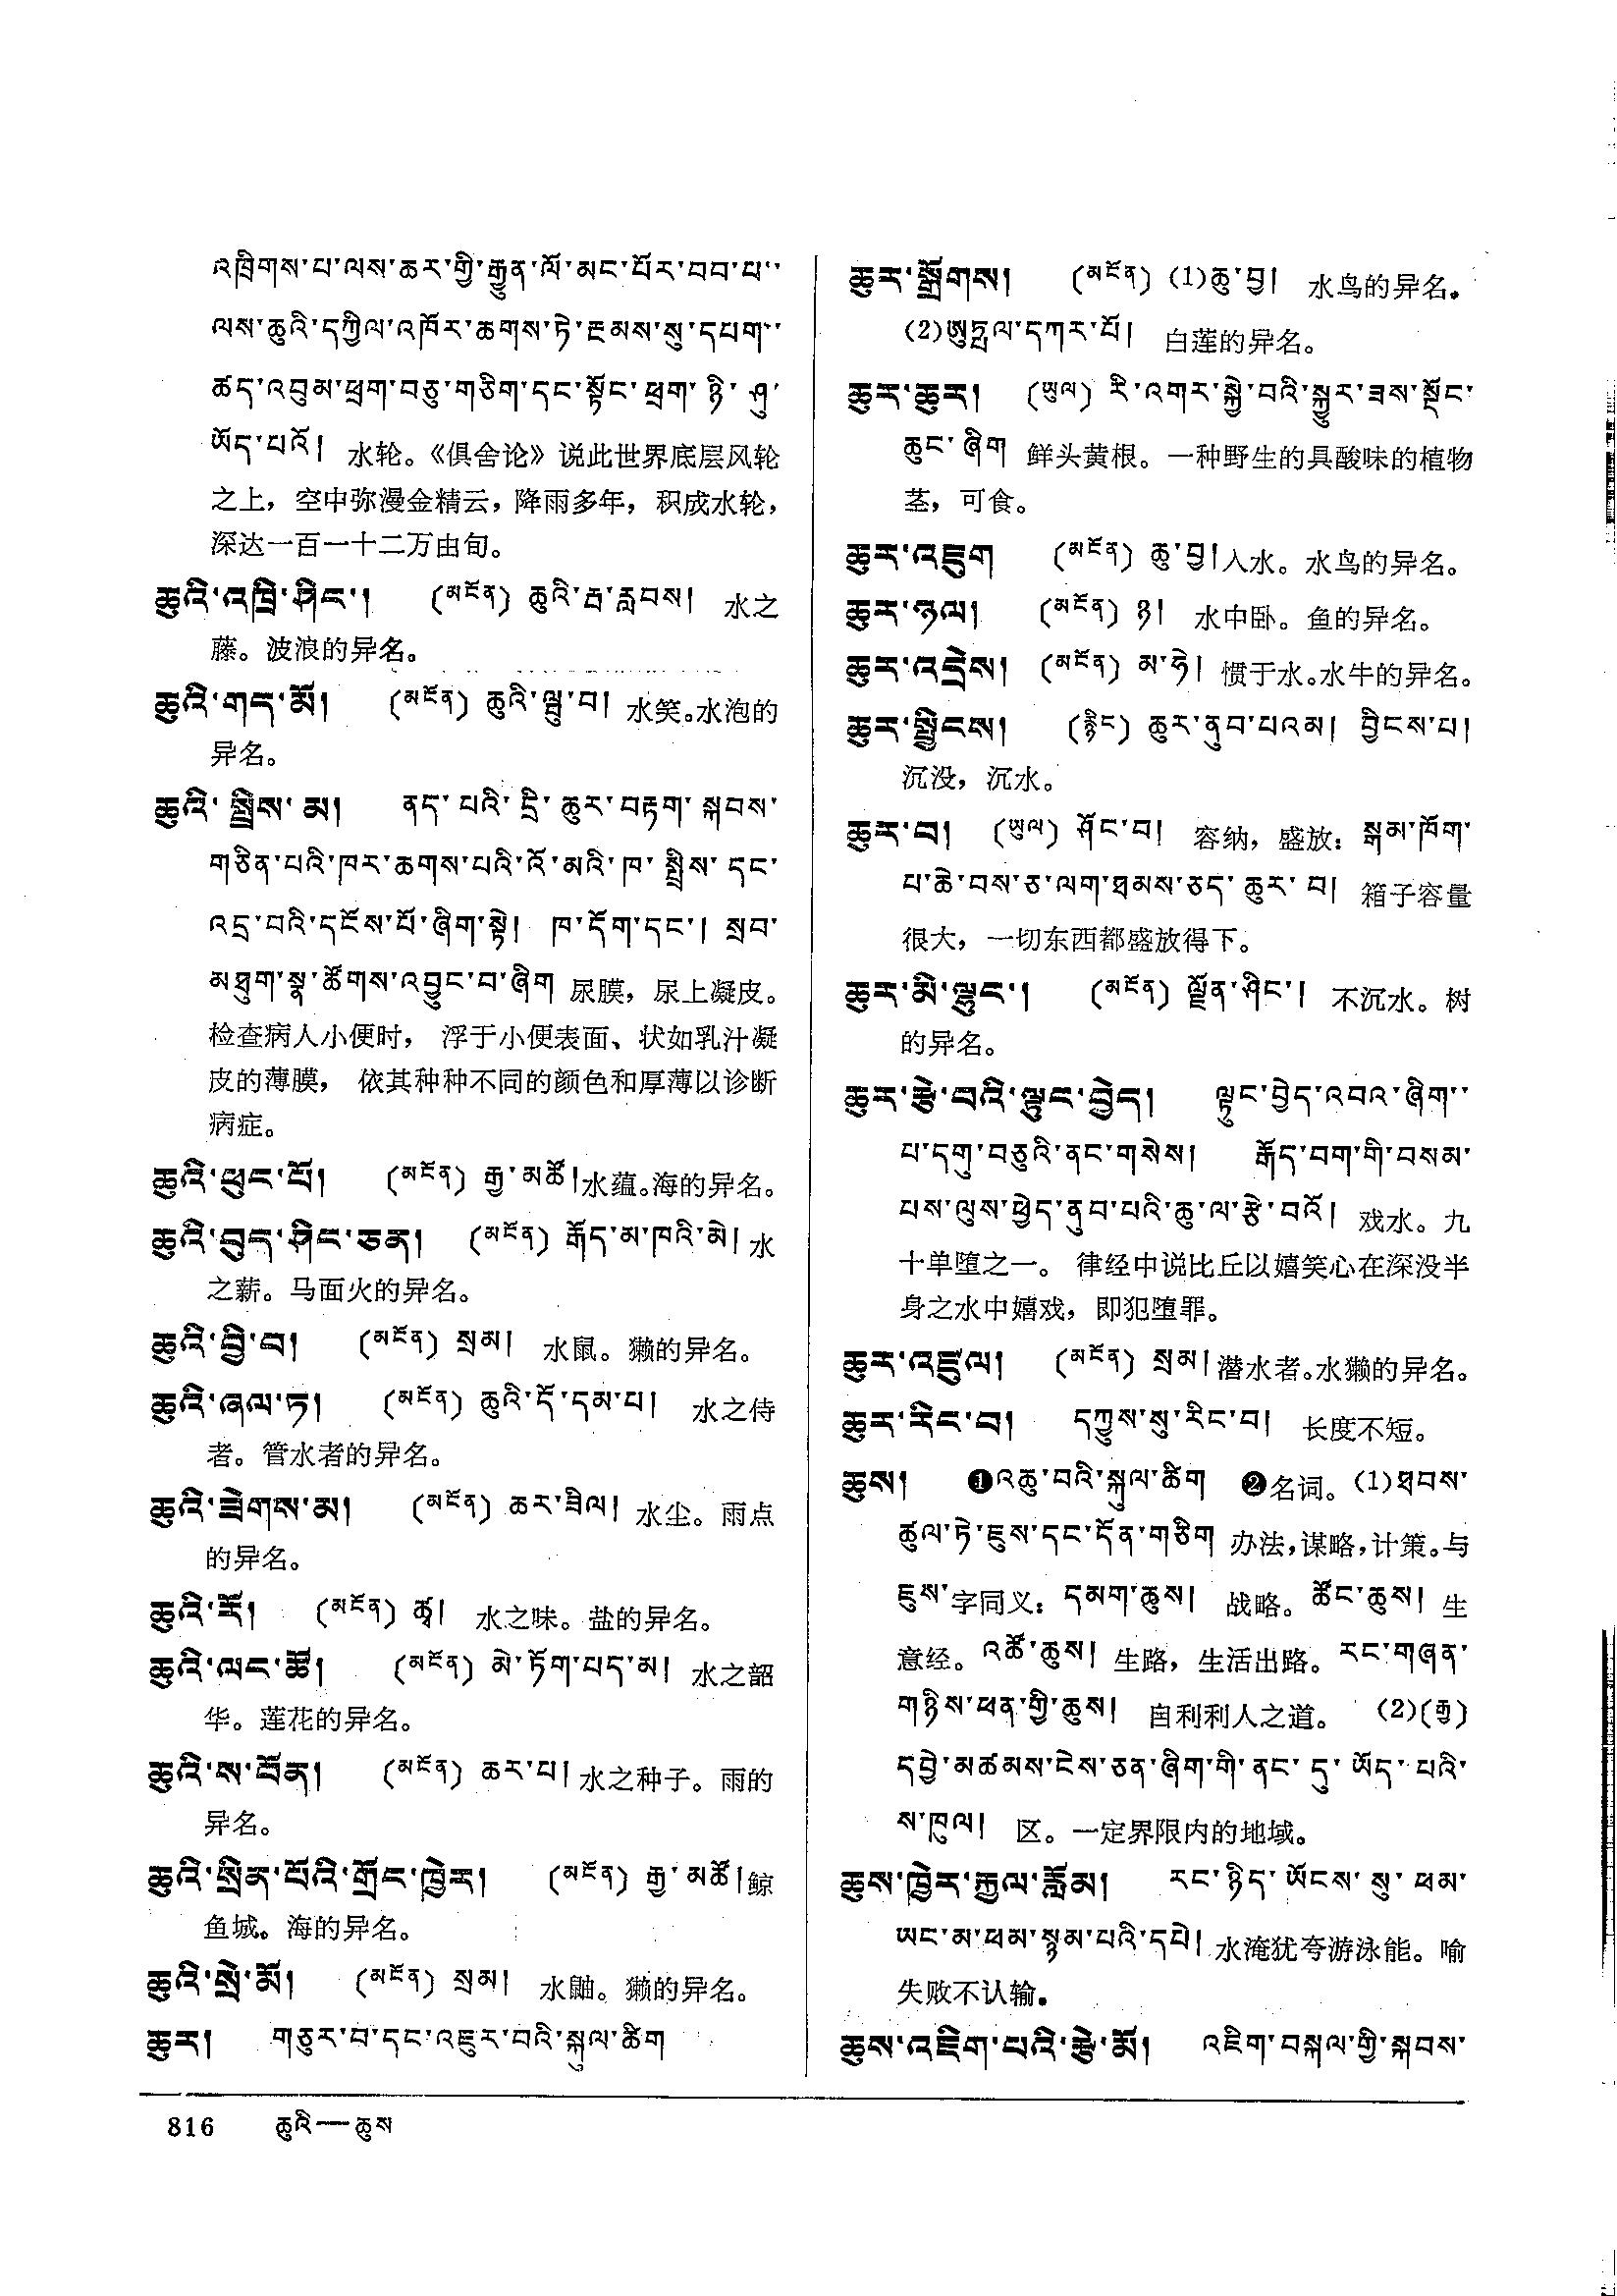 འཁྲིགས་པ་ལས་ཆར་གྱི་རྒྱུན་ལོ་མང་པོར་བབ་པ་་
ལས་ཆུའི་དཀྱིལ་འཁོར་ཆགས་ཏེ་ཟམས་སུ་དཔག་་
ཚད་འབུམ་ཕྲག་བཅུ་གཅིག་དང་སྟོང་ཕྲག་ཉི་ཤུ་
ཡོད་པའོ། 水轮。《俱舍论》说此世界底层风轮
之上，空中弥漫金精云，降雨多年，积成水轮，
深达一百一十二万由旬。
ཆུའི་འཁྲི་ཤིང་། (མངོན) ཆུའི་རྦ་རླབས། 水之
藤。波浪的异名。
ཆུའི་གད་མོ། (མངོན) ཆུའི་ལྦུ་བ། 水笑。水泡的
异名。
ཆུའི་སྤྲིས་མ། ནད་པའི་དྲི་ཆུར་བརྟག་སྐབས་
གཅིན་པའི་ཁར་ཆགས་པའི་འོ་མའི་ཁ་སྤྲིས་དང་
འདྲ་བའི་དངོས་པོ་ཞིག་སྟེ། ཁ་དོག་དང་། སྲབ་
མཐུག་སྣ་ཚོགས་འབྱུང་བ་ཞིག 尿膜，尿上凝皮。
检查病人小便时， 浮于小便表面、状如乳汁凝
皮的薄膜， 依其种种不同的颜色和厚薄以诊断
病症。
ཆུའི་ཕུང་པོ། (མངོན) རྒྱ་མཚོ། 水蕴。海的异名。
ཆུའི་བུད་ཤིང་ཅན། (མངོན) རྒོད་མ་ཁའི་མེ། 水
之薪。马面火的异名。
ཆུའི་བྱི་བ། (མངོན) སྲམ། 水鼠。獭的异名。
ཆུའི་ཞལ་ཏ། (མངོན) ཆུའི་དོ་དམ་པ། 水之侍
者。管水者的异名。
ཆུའི་ཟེགས་མ། (མངོན) ཆར་ཟིལ། 水尘。雨点
的异名。
ཆུའི་རོ། (མངོན) ཚྭ། 水之味。盐的异名。
ཆུའི་ལང་ཚོ། (མངོན) མེ་ཏོག་པད་མ། 水之韶
华。莲花的异名。
ཆུའི་ས་བོན། (མངོན) ཆར་པ། 水之种子。雨的
异名。
ཆུའི་སྲིན་པོའི་གྲོང་ཁྱེར། (མངོན) རྒྱ་མཚོ། 鲸
鱼城。海的异名。
ཆུའི་སྲེ་མོ། (མངོན) སྲམ། 水鼬。獭的异名。
ཆུར། གཅུར་བ་དང་འཇུར་བའི་སྐུལ་ཚིག
ཆུར་སྒྲོགས། (མངོན) (1)ཆུ་བྱ། 水鸟的异名。
(2)ཨུཏྤལ་དཀར་པོ། 白莲的异名。
ཆུར་ཆུར། (ཡུལ) རི་འགར་སྐྱེ་བའི་སྐྱུར་ཟས་སྡོང་
ཆུང་ཞིག 鲜头黄根。一种野生的具酸味的植物
茎，可食。
ཆུར་འཇུག (མངོན) ཆུ་བྱ། 入水。水鸟的异名。
ཆུར་ཉལ། (མངོན) ཉ། 水中卧。鱼的异名。
ཆུར་འདྲེས། (མངོན) མ་ཧེ། 惯于水。水牛的异名。
ཆུར་སྦྱིངས། (རྙིང) ཆུར་ནུབ་པའམ། བྱིངས་པ།
沉没，沉水。
ཆུར་བ། (ཡུལ) ཤོང་བ། 容纳，盛放：སྒམ་ཁོག་
པ་ཆེ་བས་ཅ་ལག་ཐམས་ཅད་ཆུར་བ། 箱子容量
很大，一切东西都盛放得下。
ཆུར་མི་ལྷུང་། (མངོན) ལྗོན་ཤིང་། 不沉水。树
的异名。
ཆུར་རྩེ་བའི་ལྟུང་བྱེད། ལྟུང་བྱེད་འབའ་ཞིག་་
པ་དགུ་བཅུའི་ནང་གསེས། རྒོད་བག་གི་བསམ་
པས་ལུས་ཕྱེད་ནུབ་པའི་ཆུ་ལ་རྩེ་བའོ། 戏水。九
十单堕之一。 律经中说比丘以嬉笑心在深没半
身之水中嬉戏，即犯堕罪。
ཆུར་འཛུལ། (མངོན) སྲམ། 潜水者。水獭的异名。
ཆུར་རིང་བ། དཀྱུས་སུ་རིང་བ། 长度不短。
ཆུས། ❶འཆུ་བའི་སྐུལ་ཚིག ❷名词。(1)ཐབས་
ཚུལ་ཏེ་ཇུས་དང་དོན་གཅིག 办法，谋略，计策。与
ཇུས་字同义：དམག་ཆུས། 战略。ཚོང་ཆུས། 生
意经。འཚོ་ཆུས། 生路，生活出路。རང་གཞན་
གཉིས་ཕན་གྱི་ཆུས། 自利利人之道。 (2)(རྒྱ)
དབྱེ་མཚམས་ངེས་ཅན་ཞིག་གི་ནང་དུ་ཡོད་པའི་
ས་ཁུལ། 区。一定界限内的地域。
ཆུས་ཁྱེར་རྐྱལ་རློམ། རང་ཉིད་ཡོངས་སུ་ཕམ་
ཡང་མ་ཕམ་སྙམ་པའི་དཔེ། 水淹犹夸游泳能。喻
失败不认输。
ཆུས་འཇིག་པའི་རྩེ་མོ། འཇིག་བསྐལ་གྱི་སྐབས་
816 ཆུའི—ཆུས